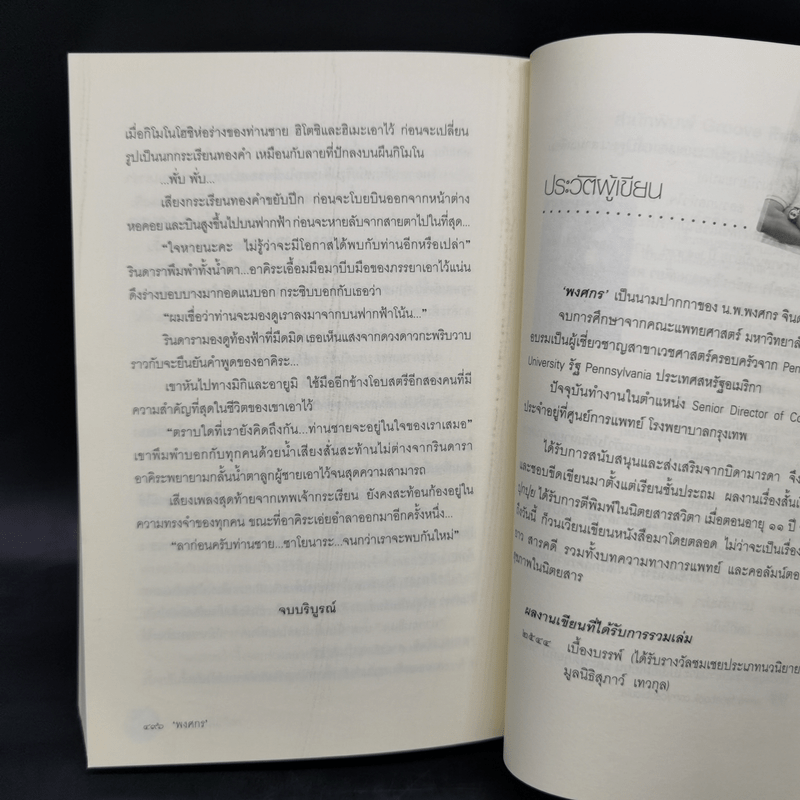 เมื่อกิโมโนโฮชิห่อร่างของท่านชาย ฮิโตชิและฮิเมะเอาไว้ ก่อนจะเปลี่ยน
รูปเป็นนกกระเรียนทองคำ เหมือนกับลายที่ปักลงบนผืนกิโมโน
...พั่บ พั่บ...
เสียงกระเรียนทองคำขยับปีก ก่อนจะโบยบินออกจากหน้าต่าง
หอคอย และบินสูงขึ้นไปบนฟากฟ้า ก่อนจะหายลับจากสายตาไปในที่สุด...
“ใจหายนะคะ ไม่รู้ว่าจะมีโอกาสได้พบกับท่านอีกหรือเปล่า”
รินดาราพึมพำทั้งน้ำตา...อาคิระเอื้อมมือมาบีบมือของภรรยาเอาไว้แน่น
ดึงร่างบอบบางมากอดแนบอก กระซิบบอกกับเธอว่า
“ผมเชื่อว่าท่านจะมองดูเราลงมาจากบนฟากฟ้าโน้น...”
รินดารามองดูท้องฟ้าที่มืดมิด เธอเห็นแสงจากดวงดาวกะพริบวาบ
ราวกับจะยืนยันคำพูดของอาคิระ...
เขาหันไปทางมิกิและอายูมิ ใช้มืออีกข้างโอบสตรีอีกสองคนที่มี
ความสำคัญที่สุดในชีวิตของเขาเอาไว้
“ตราบใดที่เรายังคิดถึงกัน...ท่านชายจะอยู่ในใจของเราเสมอ”
เขาพึมพำบอกกับทุกคนด้วยน้ำเสียงสั่นสะท้านไม่ต่างจากรินดารา
อาคิระพยายามกลั้นน้ำตาลูกผู้ชายเอาไว้จนสุดความสามารถ
เสียงเพลงสุดท้ายจากเทพเจ้ากระเรียน ยังคงสะท้อนก้องอยู่ใน
ความทรงจำของทุกคน ขณะที่อาคิระเอ่ยอำลาออกมาอีกครั้งหนึ่ง...
“ลาก่อนครับท่านชาย...ซาโยนาระ...จนกว่าเราจะพบกันใหม่”
จบบริบูรณ์
๔๙๖ ‘พงศกร’
ประวัติผู้เขียน
‘พงศกร’ เป็นนามปากกาของ น.พ.พงศกร จินด
จบการศึกษาจากคณะแพทยศาสตร์ มหาวิทยาลั
อบรมเป็นผู้เชี่ยวชาญสาขาเวชศาสตร์ครอบครัวจาก Pen
University รัฐ Pennsylvania ประเทศสหรัฐอเมริกา
ปัจจุบันทำงานในตำแหน่ง Senior Director of Co
ประจำอยู่ที่ศูนย์การแพทย์ โรงพยาบาลกรุงเทพ
ได้รับการสนับสนุนและส่งเสริมจากบิดามารดา จึง
และชอบขีดเขียนมาตั้งแต่เรียนชั้นประถม ผลงานเรื่องสั้นเ
ปุกปุย ได้รับการตีพิมพ์ในนิตยสารสวิตา เมื่อตอนอายุ ๑๑ ปี
ถึงวันนี้ ก็วนเวียนเขียนหนังสือมาโดยตลอด ไม่ว่าจะเป็นเรื่อง
ยาว สารคดี รวมทั้งบทความทางการแพทย์ และคอลัมน์ตอ
สุขภาพในนิตยสาร
ผลงานเขียนที่ได้รับการรวมเล่ม
๒๕๔๔ เบื้องบรรพ์ (ได้รับรางวัลชมเชยประเภทนวนิยาย
มูลนิธิสุภาว์ เทวกุล)